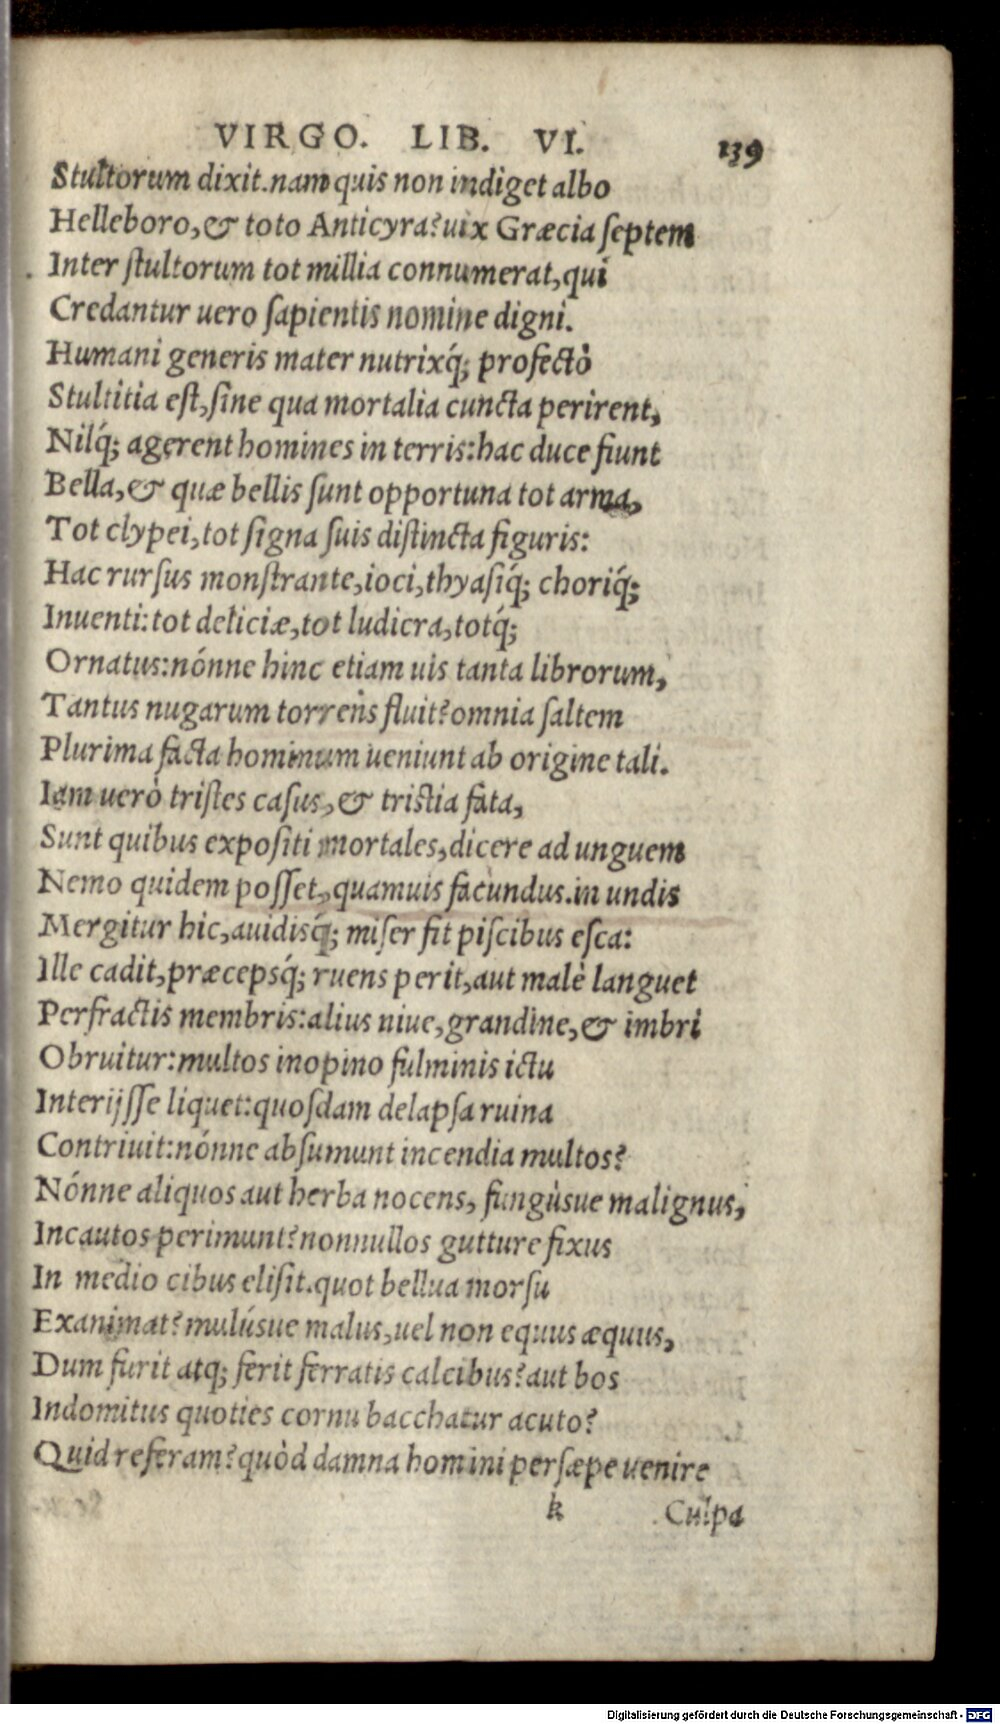 VIRGO. LIB. VI. 139
Stultorum dixit.nam quis non indiget albo
Helleboro,& toto Anticyra?uix Græcia ſeptem
Inter ſtultorum tot millia connumerat,qui
Credantur uero ſapientis nomine digni.
Humani generis mater nutrixq́; profectò
Stultitia eſt,ſine qua mortalia cuncta perirent,
Nilq́; agerent homines in terris:hac duce fiunt
Bella,& quæ bellis ſunt opportuna tot arma,
Tot clypei,tot ſigna ſuis diſtincta figuris:
Hac rurſus monſtrante,ioci,thyaſiq́; choriq́;
Inuenti:tot deliciæ,tot ludicra,totq́;
Ornatus:nónne hinc etiam uis tanta librorum,
Tantus nugarum torrens fluit?omnia ſaltem
Plurima facta hominum ueniunt ab origine tali.
Iam uerò triſtes caſus,& triſtia fata,
Sunt quibus expoſiti mortales,dicere ad unguem
Nemo quidem poſſet,quamuis facundus.in undis
Mergitur hic,auidisq́; miſer fit piſcibus eſca:
Ille cadit,præcepsq́; ruens perit,aut malè languet
Perfractis membris:alius niue,grandine,& imbri
Obruitur:multos inopino fulminis ictu
Interijſſe liquet:quoſdam delapſa ruina
Contriuit:nónne abſumunt incendia multos?
Nónne aliquos aut herba nocens, fungùsue malignus,
Incautos perimunt?nonnullos gutture fixus
In medio cibus eliſit.quot bellua morſu
Exanimat?mulúsue malus,uel non equus æquus,
Dum furit atq; ferit ferratis calcibus?aut bos
Indomitus quoties cornu bacchatur acuto?
Quid referam?quòd damna homini perſæpe uenire
k Culpa
Digitalisierung gefördert durch die Deutsche Forschungsgemeinschaft - DFG